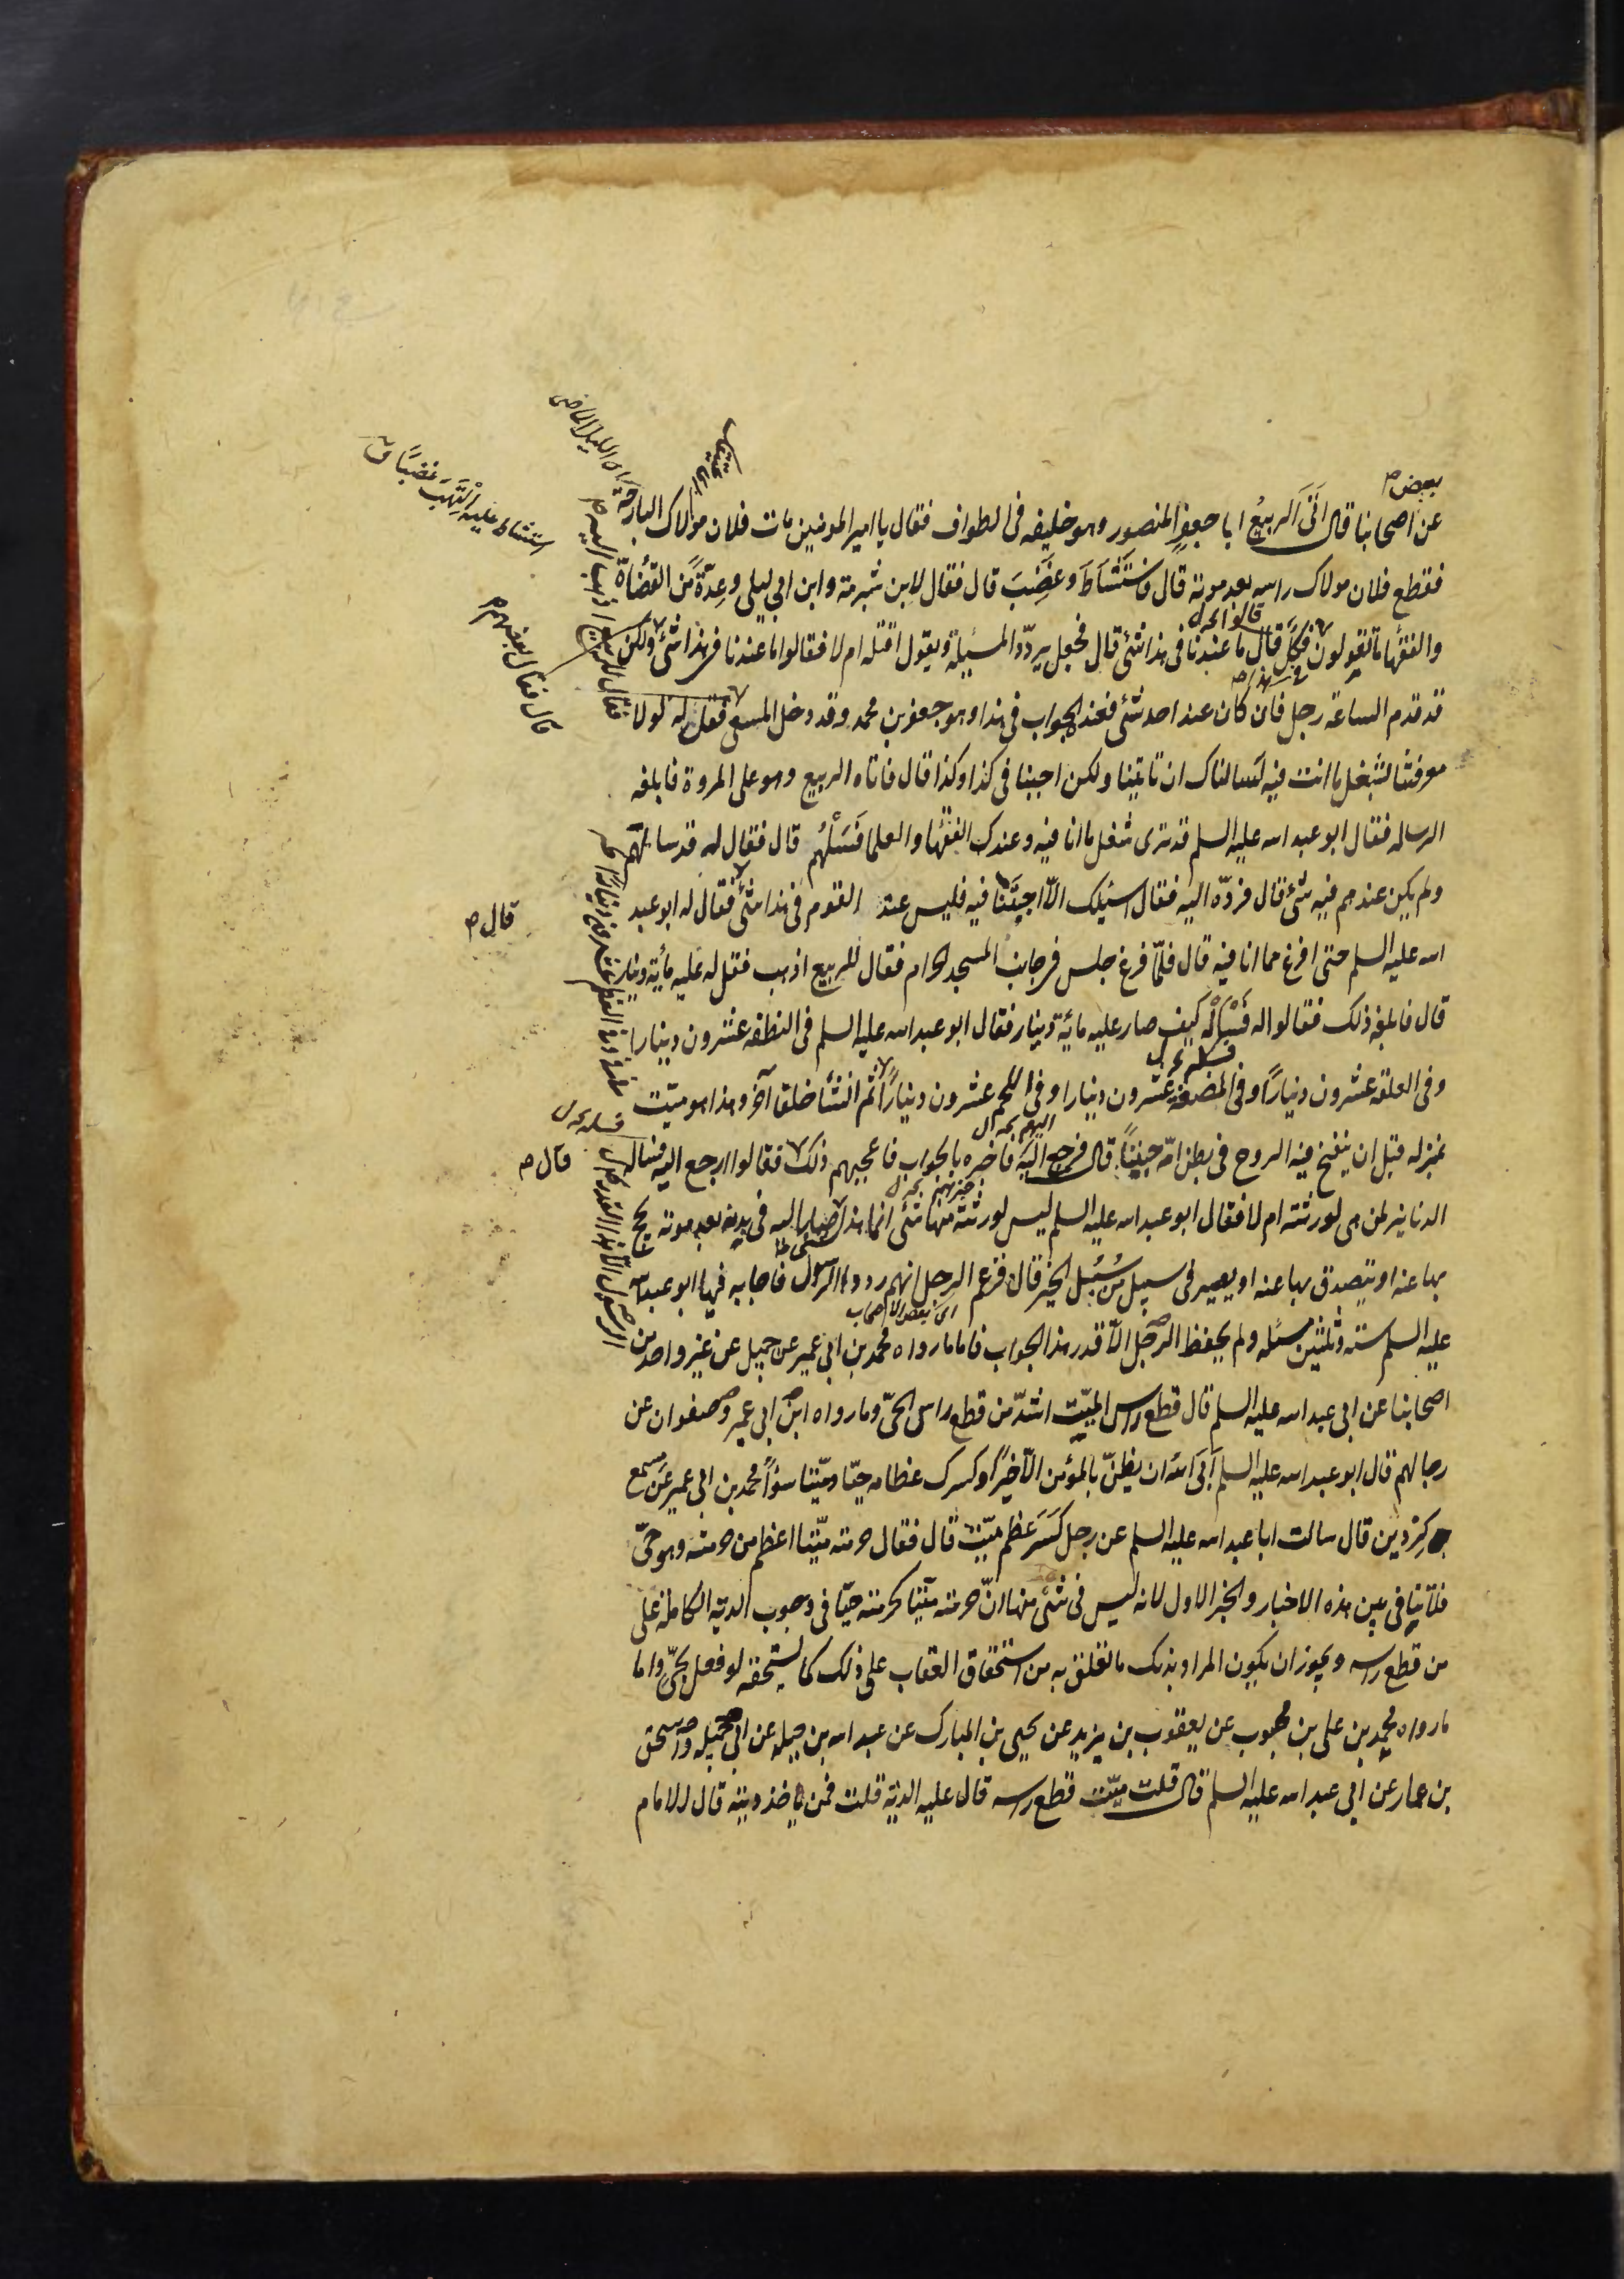 بعض
عن اصحابنا قال اَتَى الرَبيعُ ابا جعفرٍ المنصور وهو خليفه فى الطواف فقال يا امير المومنين مات فلان مولاك البارحة
فقطع فلان مولاك راسه بعد موته قال فاستَشَاطَ وغَضِبَ قال فقال لابن شبرمة وابن ابى ليلى وعِدّةً من القُضاة
والفقُها ما تقولون فى هذا فكلٌّ قال ما عندنا فى هذا شئ قال فجعل يردّد المسئلة ويقول اقتله ام لا فقالوا ما عندنا فى هذا شئ ولكن
قد قدم الساعة رجل فان كان عند احد شئ فعنده الجواب فى هذا وهو جعفر بن محمد وقد دخل المسعى فقل له لولا
معرفتنا بشغل ما انت فيه لسالناك ان تاتينا ولكن اجبنا فى كذا وكذا قال فاتاه الربيع وهو على المروة فابلغه
الرساله فقال ابو عبد اسه عليه السلم قد ترى شغل ما انا فيه وعندك الفقُها والعلما فَسَلْهُم قال فقال له قد سالهم
ولم يكن عندهم فيه شئ قال فردّه اليه فقال اسئلك الّا اجبتَنا فيه فليس عند القوم فى هذا شئ فقال له ابو عبد
اسه عليه السلم حتى افرغ مما انا فيه قال فلمّا فرغ جلس فى جانب المسجد الحرام فقال للربيع اذهب فقل له عليه مائة دينار
قال فابلغه ذلك فقالوا له فَسَلْه كيف صار عليه مائة دينار فقال ابو عبد اسه عليه السلم فى النطفه عشرون دينارا
وفى العلقه عشرون دينارًا وفى المضغه عشرون دينارا وفى اللحم عشرون دينارًا ثم انشأ خلقا آخر وهذا هو ميّت
بمنزله قبل ان ينفخ فيه الروح فى بطن امّه جنينًا قال فرجع اليه فاخبره بالجواب فاعجبهم ذلك فقالوا ارجع اليه فساله
الدنانير لمن هى لورثته ام لا فقال ابو عبد اسه عليه السلم ليس لورثته منها شئ انما هذا صار اليه فى بدنه بعد موته يحج
بها عنه او يتصدق بها عنه او يصير فى سبيل من سُبُل الخير قال فزعم الرجل انهم ردوا الرسول فاجابه فيها ابو عبد اسه
عليه السلم ستة وثلثين مسئله ولم يحفظ الرجل الّا قدر هذا الجواب فاما ما رواه محمد بن ابى عمير عن جميل عن غير واحد من
اصحابنا عن ابى عبد اسه عليه السلم قال قطع راس الميّت اشدّ من قطع راس الحىّ وما رواه ابن ابى عمير وصفوان عن
رجالهم قال ابو عبد اسه عليه السلم اَبَى اللهُ ان يظنّ بالمؤمن الّا خيرًا وكسرك عظامه حيّا وميّتا سواءً محمد بن ابى عمير عن مسمع
كِرْدين قال سالت ابا عبد اسه عليه السلم عن رجل كَسَرَ عظم ميّت قال فقال حرمته ميّتا اعظم من حرمته وهو حىّ
فلا تنافى بين هذه الاخبار والخبر الاول لانه ليس فى شئ منها انّ حرمته ميّتا كحرمته حيّا فى وجوب الدية الكاملة على
من قطع راسه ويجوز ان يكون المراد بذلك ما تعلق به من استحقاق العقاب على ذلك كما يستحقه لو فعل بحىّ واما
ما رواه محمد بن على بن محبوب عن يعقوب بن يزيد عن يحيى بن المبارك عن عبد اسه بن جبله عن ابى جميله واسحق
بن عمار عن ابى عبد اسه عليه السلم قال قلت ميّت قطع راسه قال عليه الدية قلت فمن ياخذ ديته قال الامام
استشاط عليه اِلْتَهَبَ غضبًا ق
قال فقال بعضهم
قال
قال
اى الليل الماضى
اى بعض الاصحاب